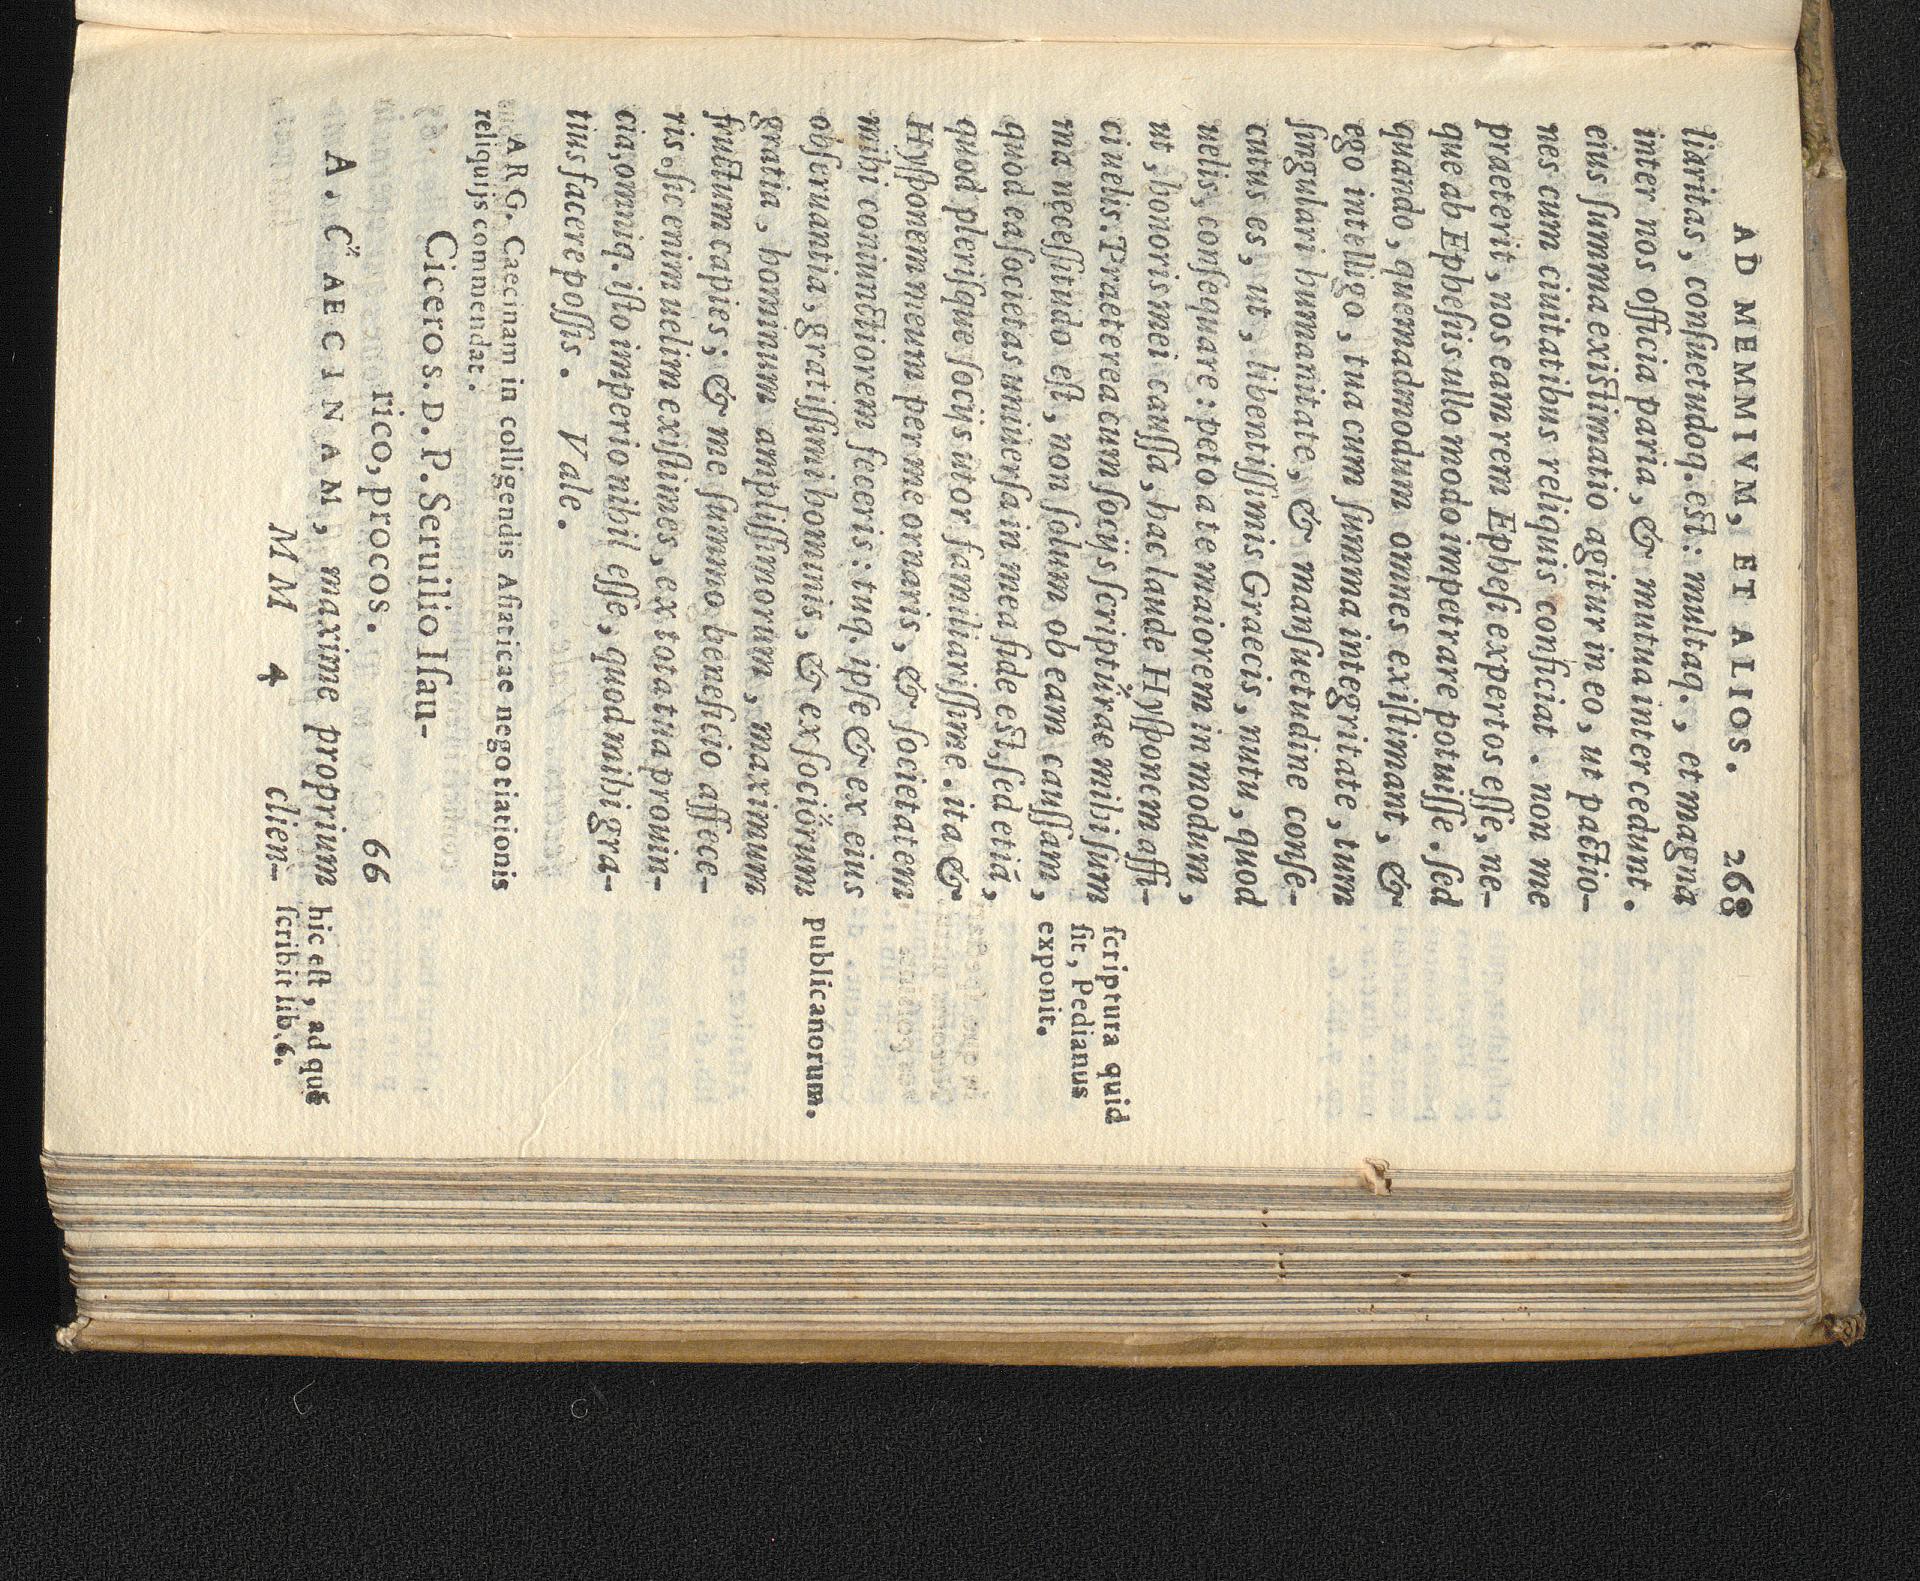 AD MEMMIVM, ET ALIOS. 268
liaritas, conſuetudoq. eſt: multaq., et magna
inter nos officia paria, & mutua intercedunt.
eius ſumma exiſtimatio agitur in eo, ut pactio-
nes cum ciuitatibus reliquis conficiat. non me
praeterit, nos eam rem Epheſi expertos eſſe, ne-
que ab Epheſiis ullo modo impetrare potuiſſe. ſed
quando, quemadmodum omnes exiſtimant, &
ego intelligo, tua cum ſumma integritate, tum
ſingulari humanitate, & manſuetudine conſe-
cutus es, ut, libentiſſimis Graecis, nutu, quod
uelis, conſequare: peto a te maiorem in modum,
ut, honoris mei cauſſa, hac laude Hyſponem affi-
ci uelis. Praeterea cum ſocijs ſcripturae mihi ſum
ma neceſſitudo eſt, non ſolum ob eam cauſſam,
quod ea ſocietas uniuerſa in mea fide eſt, ſed etiā,
quod pleriſque ſocijs utor familiariſſime. ita &
Hyſponem meum per me ornaris, & ſocietatem
mihi coniunctiorem feceris: tuq. ipſe & ex eius
obſeruantia, gratiſſimi hominis, & ex ſociorum
gratia, hominum ampliſſimorum, maximum
fructum capies; & me ſummo beneficio affece-
ris. ſic enim uelim exiſtimes, ex tota tua prouin-
cia, omniq. iſto imperio nihil eſſe, quod mihi gra-
tius facere poſſis. Vale.
ſcriptura quid
ſit, Pedianus
exponit.
publicanorum.
ARG. Caecinam in colligendis Aſiaticae negotiationis
reliquijs commendat.
Cicero S. D. P. Seruilio Iſau-
rico, procos. 66
A. CAECINAM, maxime proprium
MM 4 clien-
hic eſt, ad quē
ſcribit lib. 6.